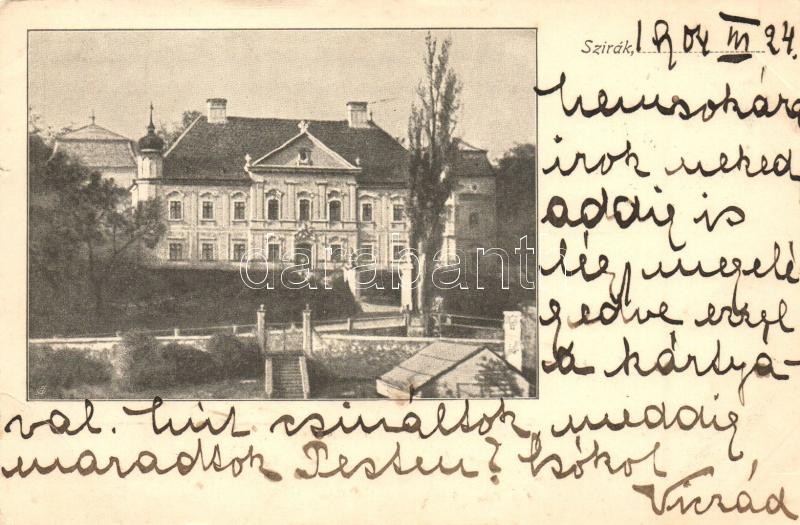 Szirák, 1904 III 24.
hemsokára
irok neked
addig is
lég megelé
gedve ezzel
a kártya-
val. hut csináltok meddig
maradtok Pesten? Csókol
darabanth.com